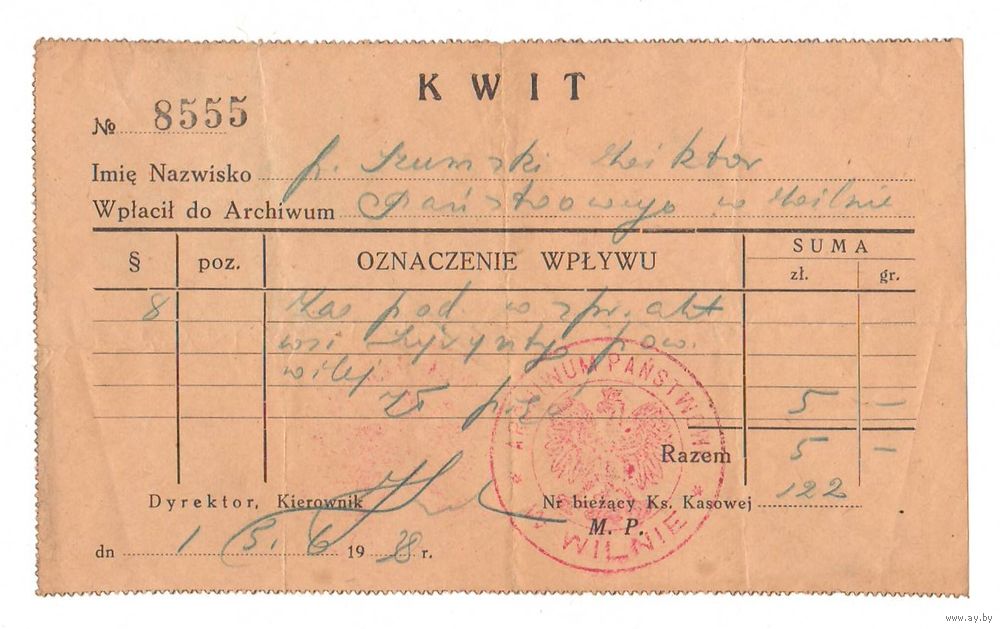 KWIT
№ 8555
Imię Nazwisko p. Szumski Wiktor
Wpłacił do Archiwum Państwowego w Wilnie
§ poz. OZNACZENIE WPŁYWU SUMA
zł. gr.
8 Za pod. w spr. akt
wsi pow.
wilej
5 —
Razem 5 —
Dyrektor, Kierownik Nr bieżący Ks. Kasowej 122
M. P.
dn 15. 6 1938 r.
ARCHIWUM PAŃSTWOWE * W WILNIE *
www.ay.by